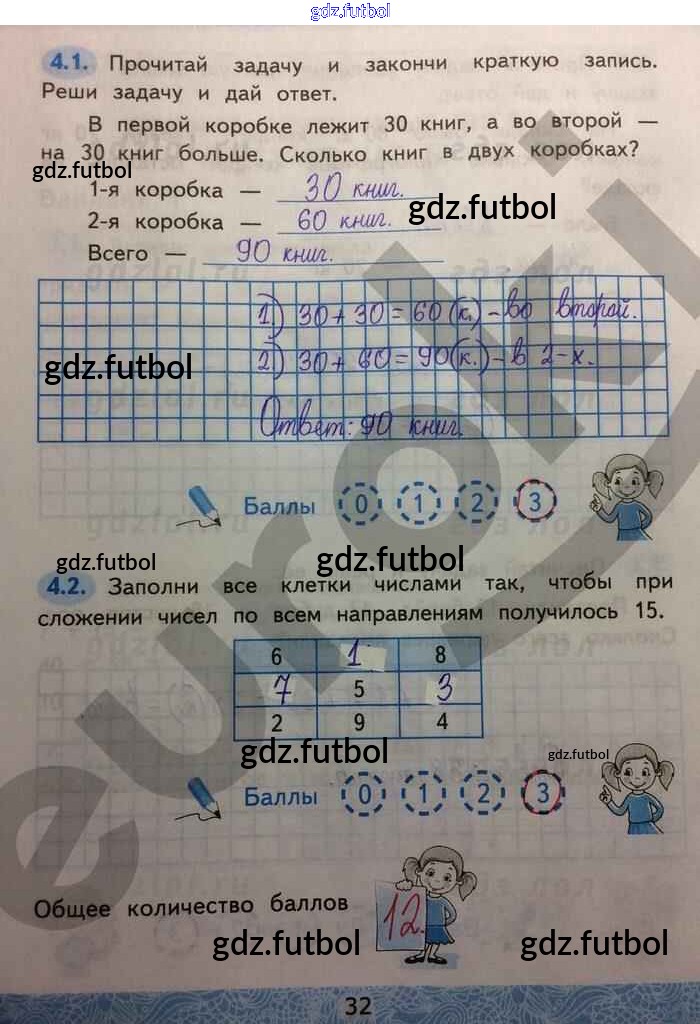 gdz.futbol
4.1. Прочитай задачу и закончи краткую запись.
Реши задачу и дай ответ.
В первой коробке лежит 30 книг, а во второй —
на 30 книг больше. Сколько книг в двух коробках?
gdz.futbol
1-я коробка — 30 книг.
gdz.futbol
2-я коробка — 60 книг.
Всего — 90 книг.
1) 30 + 30 = 60 (к.) - во второй.
gdz.futbol
2) 30 + 60 = 90 (к.) - в 2-х.
Ответ: 90 книг.
Баллы 0 1 2 3
gdz.futbol
gdz.futbol
4.2. Заполни все клетки числами так, чтобы при
сложении чисел по всем направлениям получилось 15.
6 1 8
7 5 3
2 9 4
gdz.futbol
gdz.futbol
Баллы 0 1 2 3
Общее количество баллов 12.
gdz.futbol
gdz.futbol
32
euroki